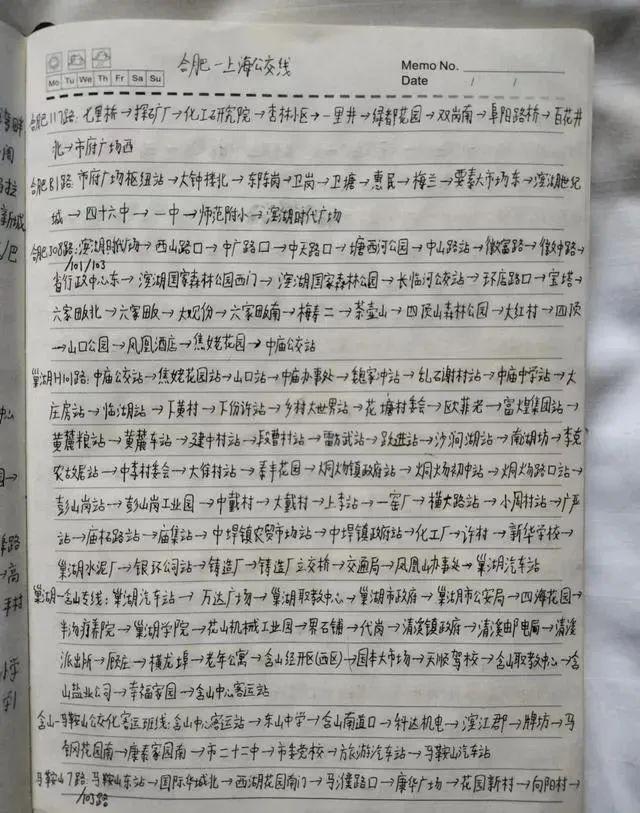 合肥—上海公交线
Memo No.
Mo Tu We Th Fr Sa Su
Date / /
合肥117路: 七里桥→探矿厂→化工研究院→杏林小区→一里井→绿都花园→双岗南→阜阳路桥→百花井
北→市府广场西
合肥B1路: 市府广场枢纽站→大钟楼北→东陈岗→卫岗→卫塘→惠民→梅兰→要素大市场东→滨湖世纪
城→四十六中→一中→师范附小→滨湖时代广场
合肥508路: 滨湖时代广场→西山路口→中广路口→中天路口→塘西河公园→中山路站→徽富路→徽州路→
/101/103
省行政中心东→滨湖国家森林公园西门→滨湖国家森林公园→长临河公交站→环店路口→宝塔→
六家畈北→六家畈→大→六家畈南→梅寿二→茶壶山→四顶山森林公园→大红村→四顶
→山口公园→凤凰酒店→焦姥花园→中庙公交站
巢湖H101路: 中庙公交站→焦姥花园站→山口站→中庙办事处→魏家冲站→乱石谢村站→中庙中学站→大
庄房站→临湖站→下黄村→下份许站→乡村大世界站→花塘村委会→欧菲光→富煌集团站→
黄麓粮站→黄麓车站→建中村站→段曹村站→雷方武站→跃进站→沙涧湖站→南湖坊→李克
农故居站→中李村委会→大份村站→泰丰花园→烔炀镇政府站→烔炀初中站→烔炀路口站→
彭山岗站→彭山岗工业园→中戴村→大戴村→上李站→一窑厂→横大路站→小周村站→广严
站→庙石路站→庙集站→中垾镇农贸市场站→中垾镇政府站→化工厂→许村→新华学校→
巢湖水泥厂→银环公司站→铸造厂→铸造厂立交桥→交通局→凤凰山办事处→巢湖汽车站
巢湖-含山专线: 巢湖汽车站→万达广场→巢湖职教中心→巢湖市政府→巢湖市公安局→四海花园→
半汤疗养院→巢湖学院→花山机械工业园→界石铺→代岗→清溪镇政府→清溪邮电局→清溪
派出所→顾庄→横龙埠→老年公寓→含山经开区(西区)→国本大市场→天顺驾校→含山职教中心→含
山盐业公司→幸福家园→含山中心客运站
含山-马鞍山公交化客运班线: 含山中心客运站→东山中学→含山南道口→科达机电→滨江郡→牌坊→马
钢花园南→康泰家园南→市二十二中→市委党校→旅游汽车站→马鞍山汽车站
马鞍山7路: 马鞍山东站→国际华城北→西湖花园南门→马濮路口→康华广场→花园新村→向阳村→
/103路